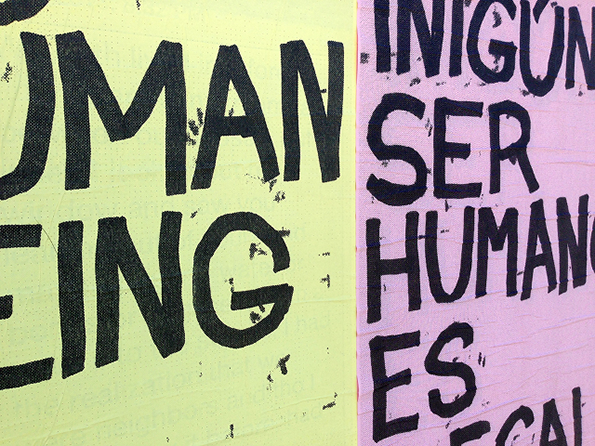 UMAN
EING
INIGÚN
SER
HUMANO
ES
EGAL